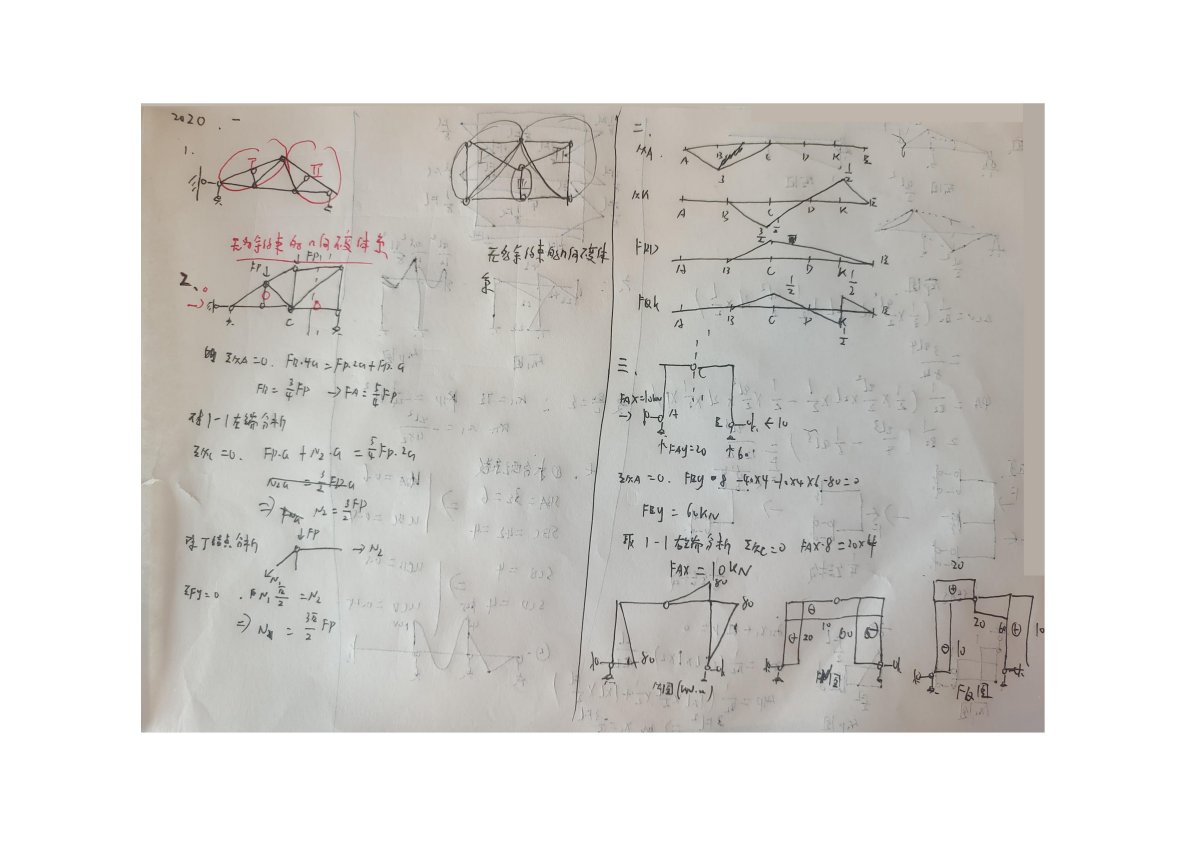 2020. 一
1.
I
II
无多余约束的几何不变体系
无多余约束的几何不变体
系
2.
FP
FP
C
ΣMA=0. FB·4a=FP·2a+FP·a
FB=3/4FP → FA=5/4FP
对1-1左端分析
ΣMC=0. FP·a+N2·a=5/4FP·2a
N2a=3/2FP·a
⇒ N2=3/2FP
对T结点分析
FP
→N2
N1
ΣFy=0. N1 √2/2=N2
⇒ N1=3√2/2FP
二.
MA.
A B C D K E
3
MK
A B C D K E
1/2
FRD
A B C D K E
FQK
A B C D K E
1/2
1/2
1/2
三.
C
FAX=10kN
A
B
←10
↑FAy=20
↑60
ΣMA=0. FBy·8-40×4-10×4×6-80=0
FBy=60kN
取1-1左端分析 ΣMC=0 FAX·8=20×4
FAX=10kN
80
80
80
M图(kN·m)
10
20
60
N图
20
20
60
10
10
FQ图